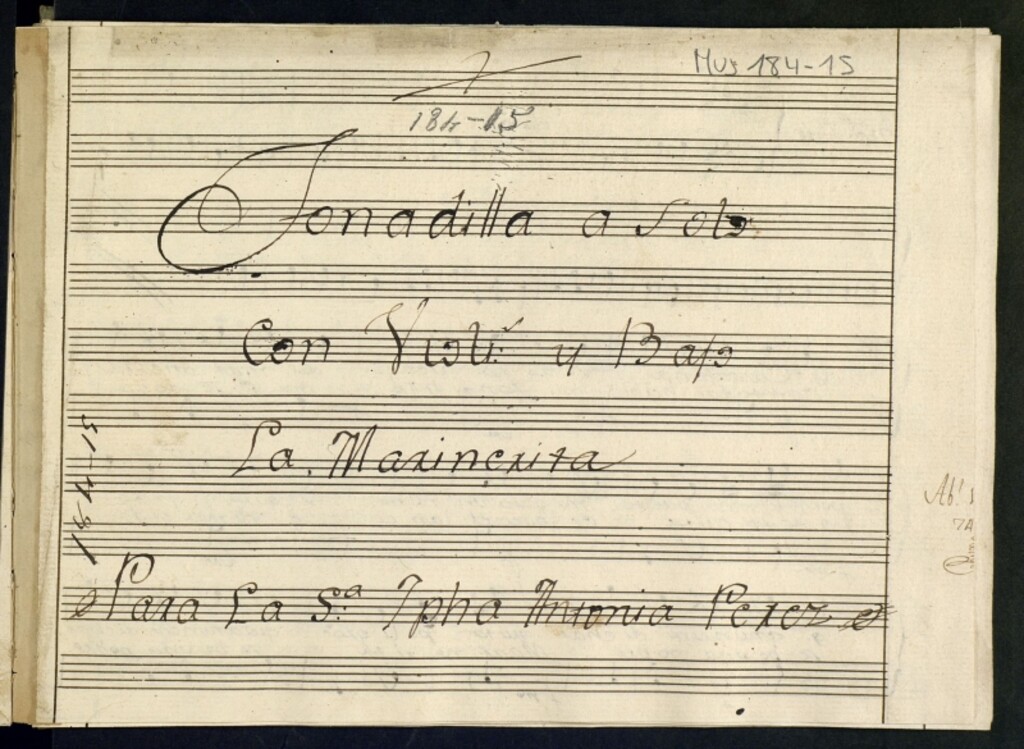 Mus 184-15
184-15
Tonadilla a solo
Con Violi.ˢ y Bajo
La Marinerita
Para La S.ª Jpha Antonia Perez